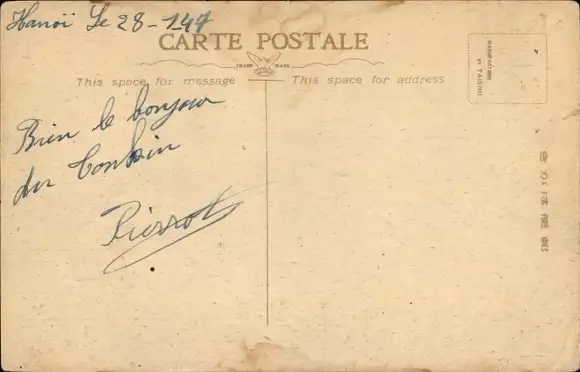 Hanoï Le 28-1-47
CARTE POSTALE
TRADE MARK
This space for message
This space for address
MANUFACTURED
BY TAISHO
Bien le bonjour
du Tonkin
Pierrot